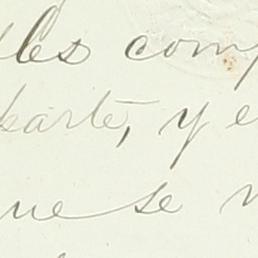 les comp
parte, y e
que se